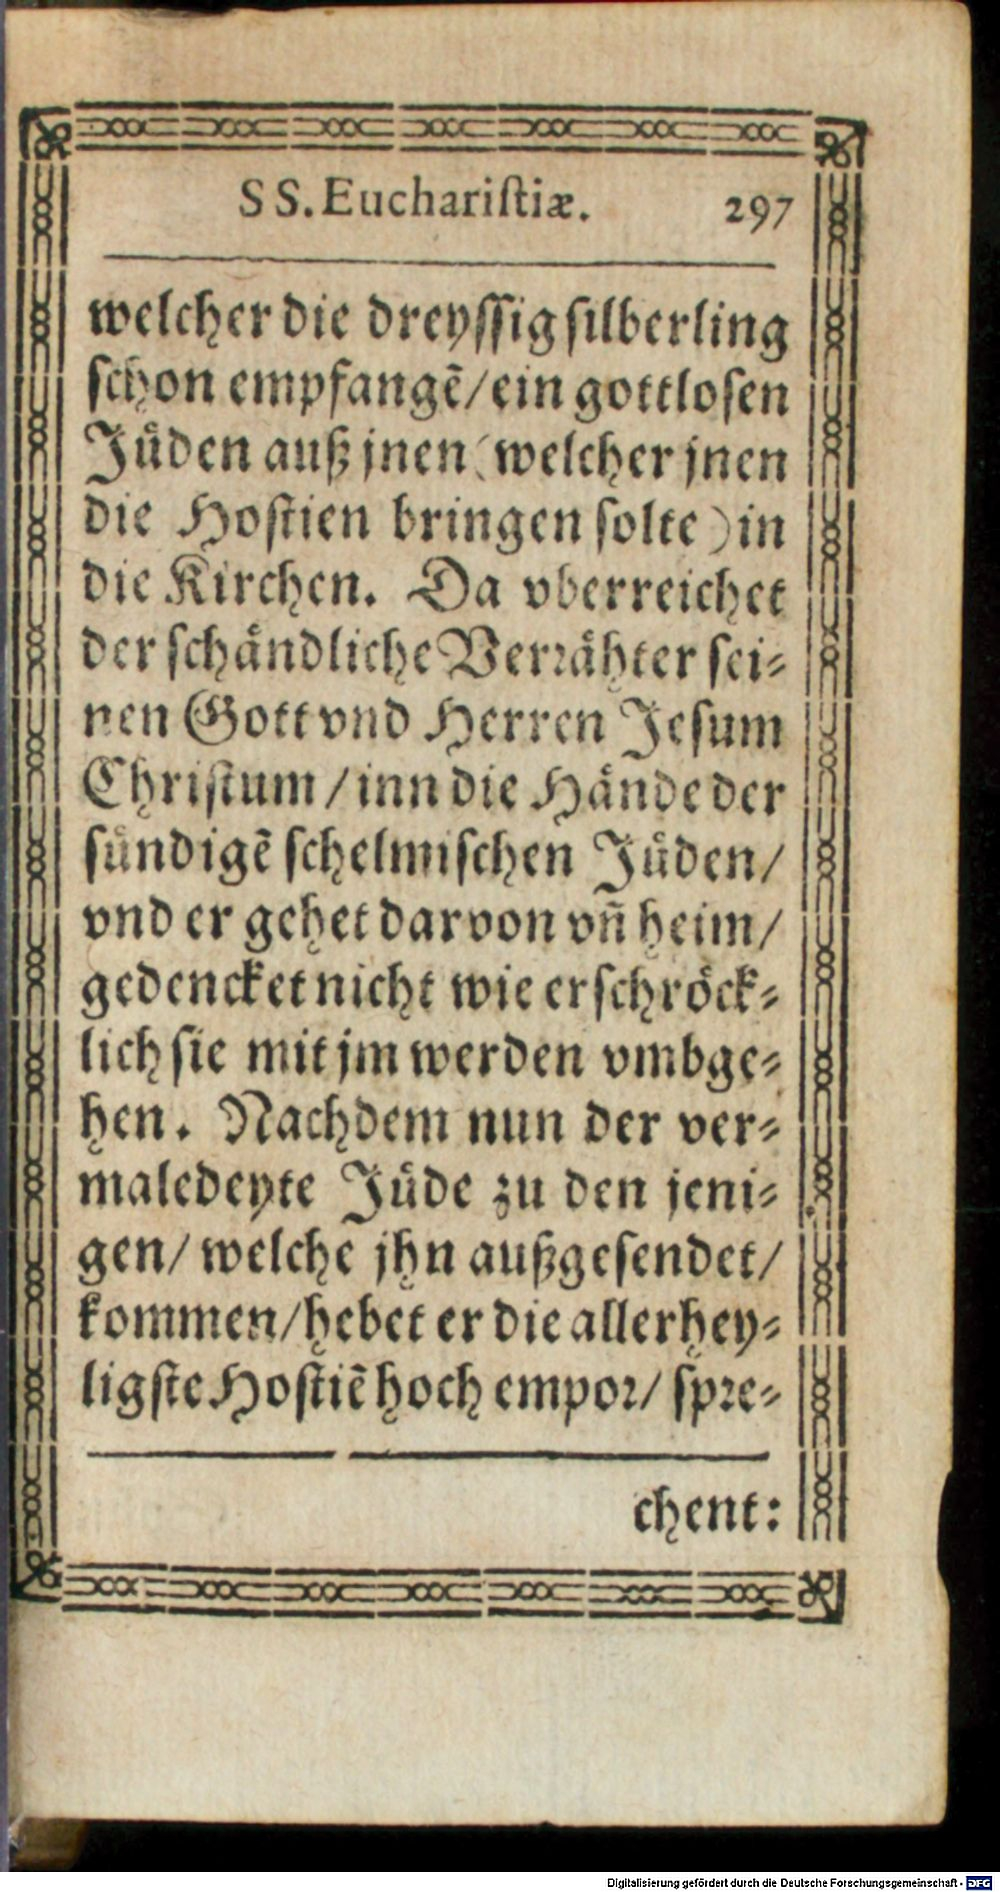 SS. Euchariſtiæ. 297
welcher die dreyſſig ſilberling
ſchon empfangẽ/ ein gottloſen
Jüden auß jnen (welcher jnen
die Hoſtien bringen ſolte) in
die Kirchen. Da vberreichet
der ſchändliche Verꝛähter ſei⸗
nen Gott vnd Herren Jeſum
Chriſtum / inn die Hände der
ſündigẽ ſchelmiſchen Jüden/
vnd er gehet darvon vñ heim/
gedencket nicht wie erſchröck⸗
lich ſie mit jm werden vmbge⸗
hen. Nachdem nun der ver⸗
maledeyte Jüde zu den jeni⸗
gen/ welche jhn außgeſendet/
kommen/ hebet er die allerhey⸗
ligſte Hoſtiẽ hoch empoꝛ/ ſpꝛe⸗
chent:
Digitalisierung gefördert durch die Deutsche Forschungsgemeinschaft - DFG